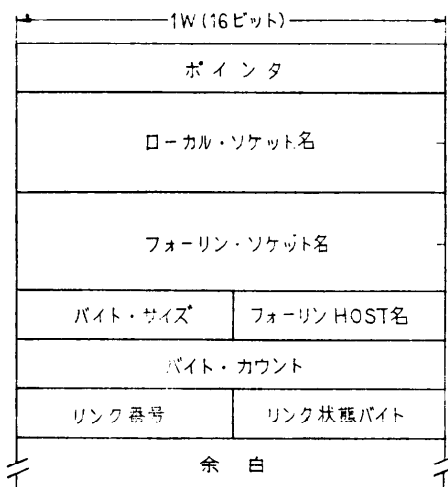 1W(16ビット)
ポインタ
ローカル・ソケット名
フォーリン・ソケット名
バイト・サイズ フォーリンHOST名
バイト・カウント
リンク番号 リンク状態バイト
余白